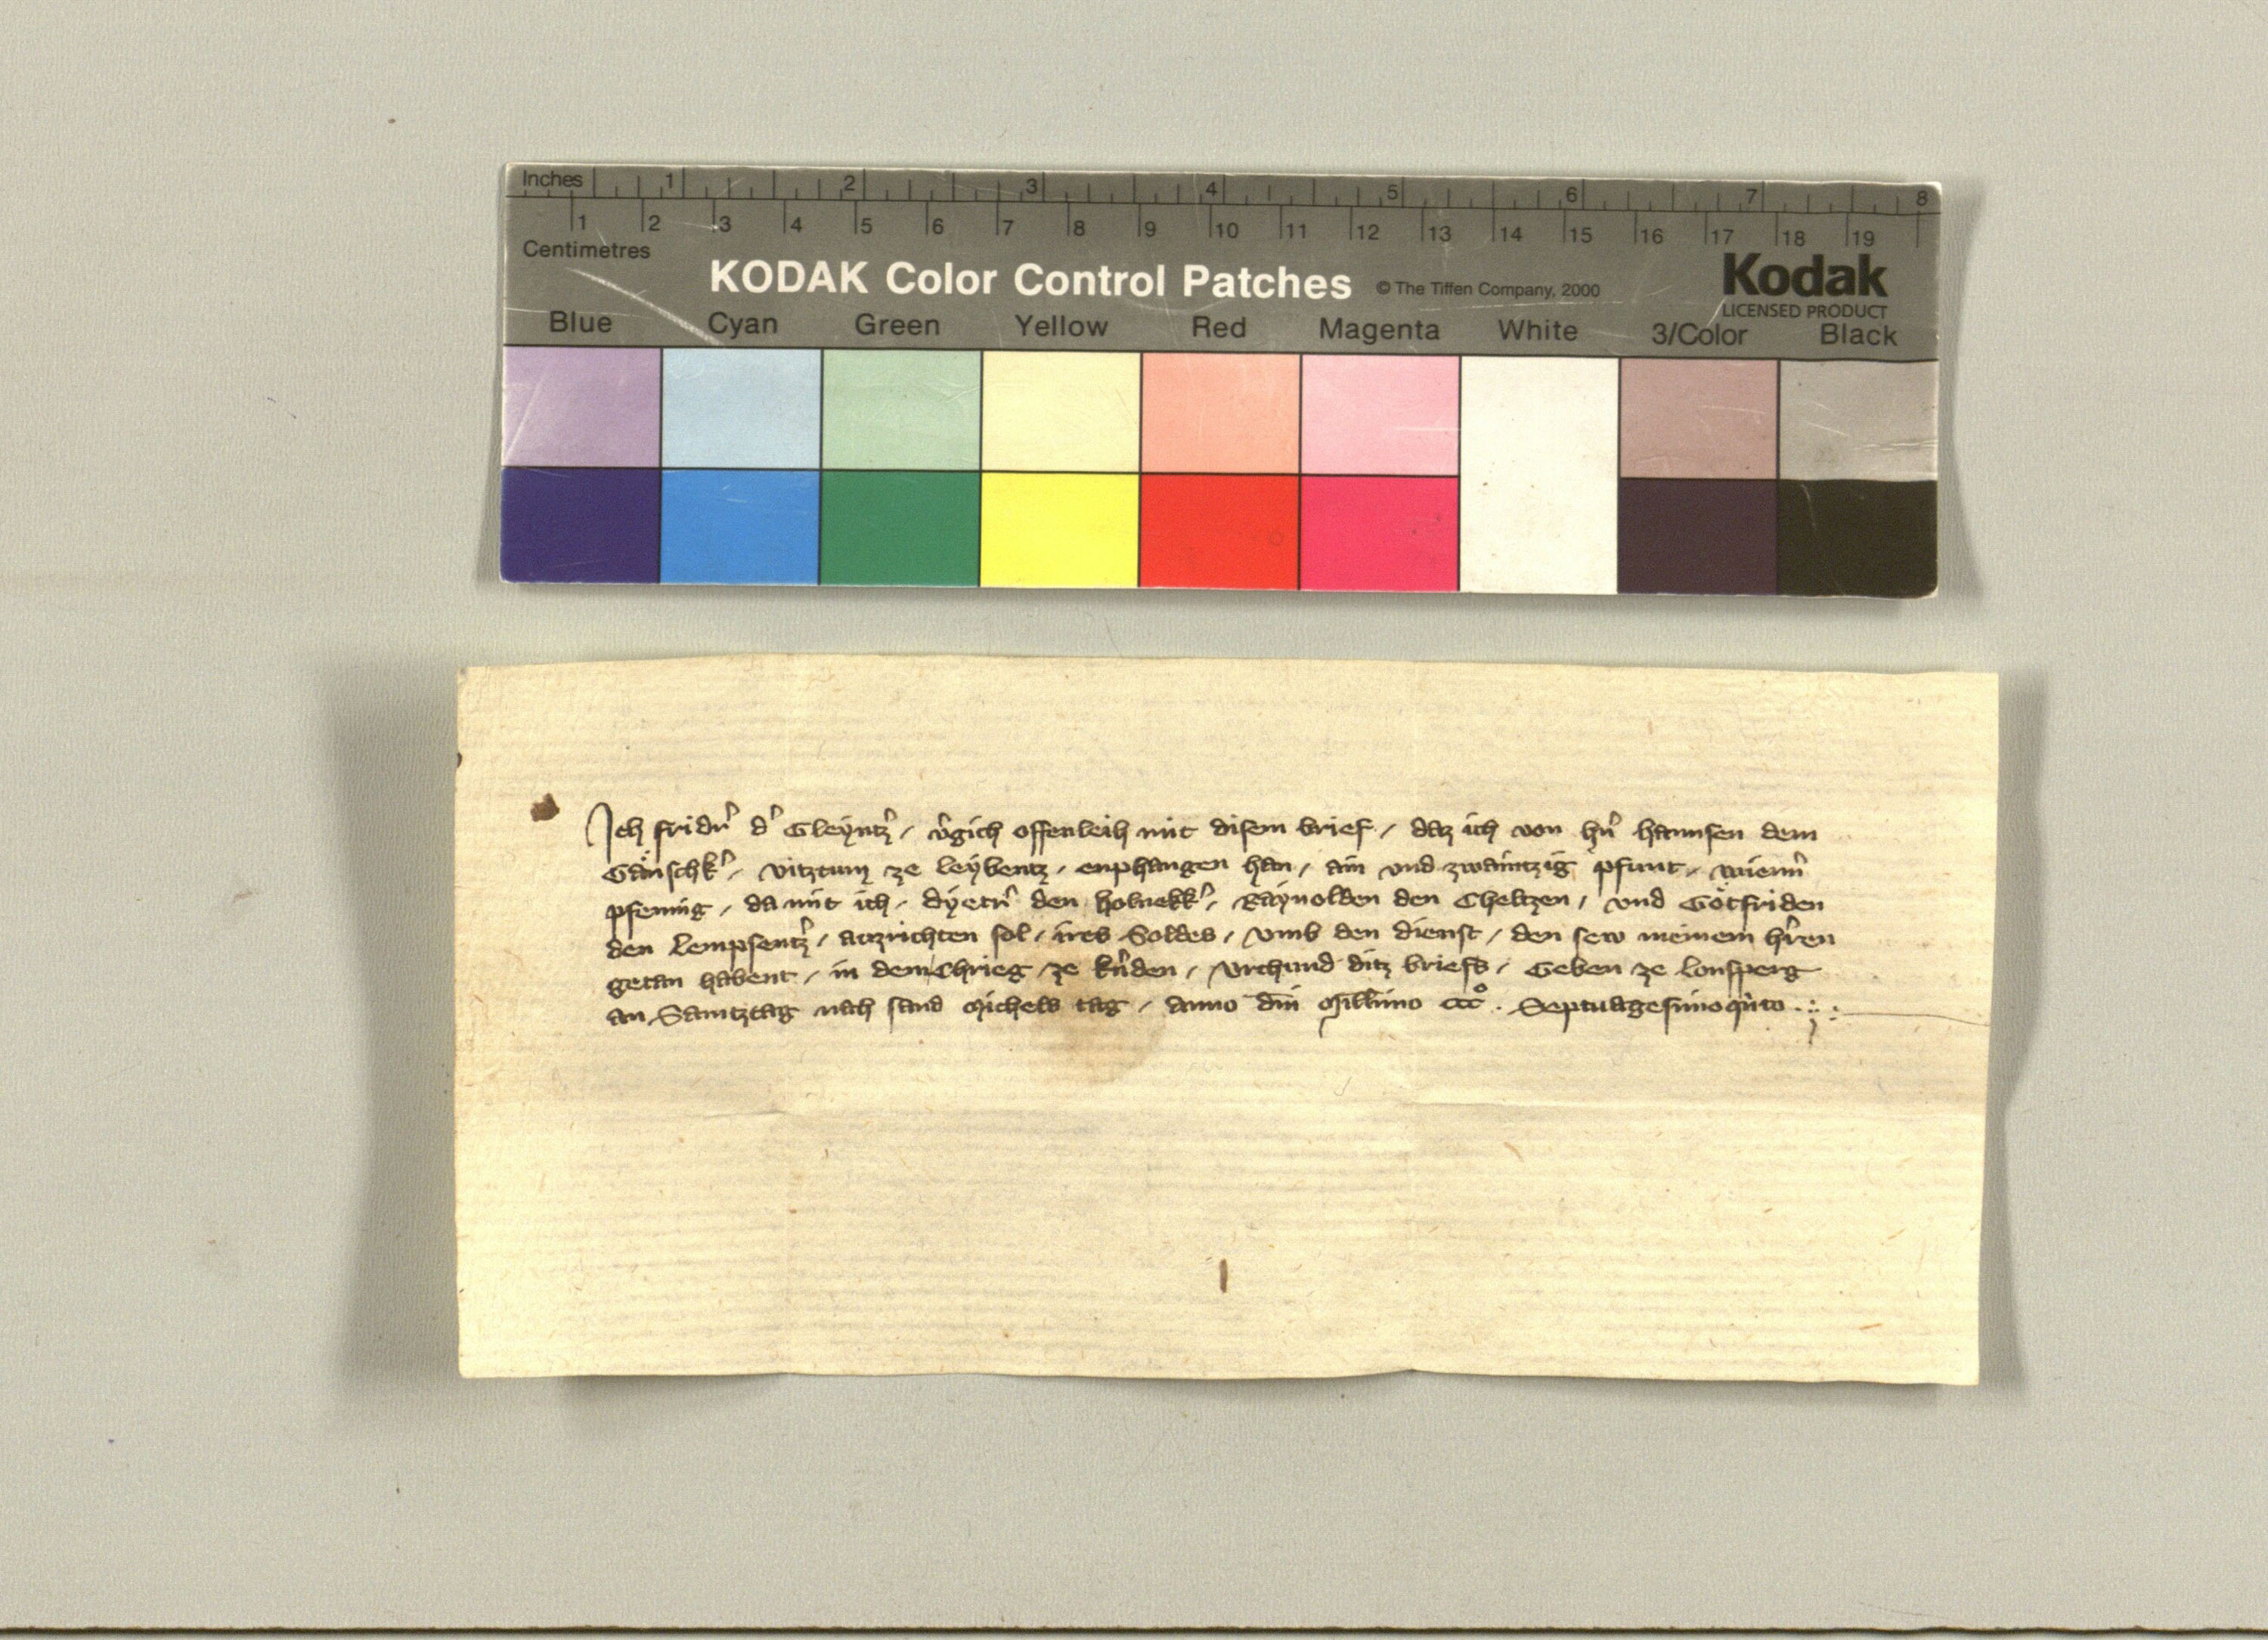 Inches 1 2 3 4 5 6 7 8
1 2 3 4 5 6 7 8 9 10 11 12 13 14 15 16 17 18 19
Centimetres
KODAK Color Control Patches © The Tiffen Company, 2000 Kodak
LICENSED PRODUCT
Blue Cyan Green Yellow Red Magenta White 3/Color Black
Ich fridr̓ d̓ Gleyntz̓ / v̓gich offenleich mit disem brief / daz ich von hn̓ hannsen dem
Gänschk̓ / vitztum ze leybentz / enphangen han / ain vnd zwaintzig pfunt / wienn̓
pfennig / da mit ich / dyetr̓ den holnekk̓ / Raynolden den Cheltzen / vnd Götfriden
den lempsentz̓ / auzrichten sol / ires Soldes / vmb den dienst / den sew meinem hr̓ren
getan habent / in dem Chrieg ze kn̓den / vrchund ditz briefs / Geben ze lonsperg
an Samtztag nach sand Michels tag / anno dni Millimo ccc° . Septuagesimoqu̓to